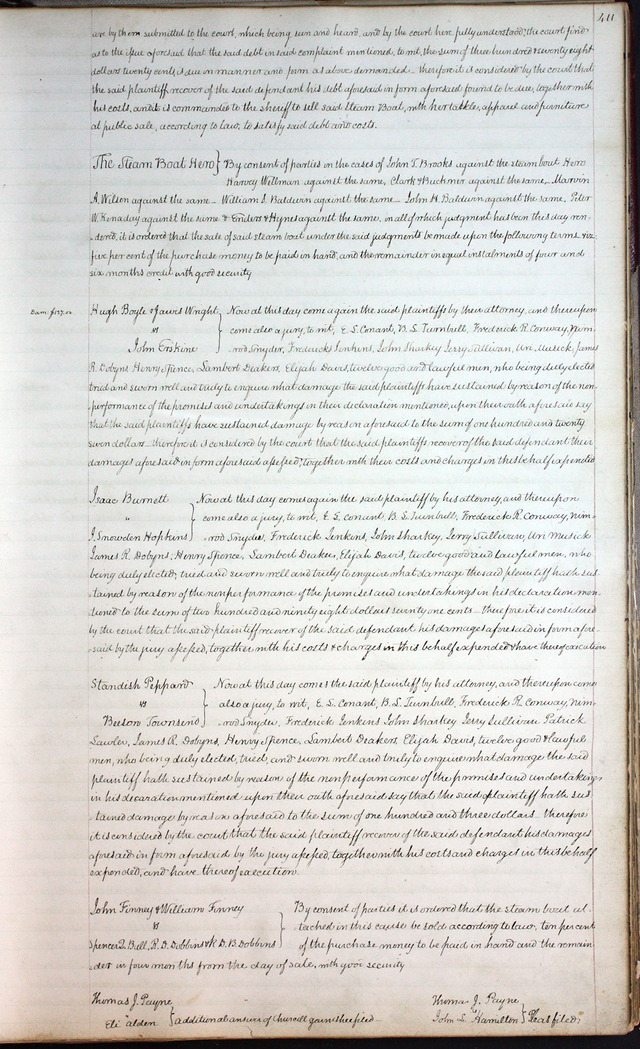 411
are by them submitted to the court, which being seen and heard, and by the court here fully understood; the court find
as to the issue aforesaid that the said debt in said complaint mentioned, to wit, the sum of three hundred & twenty eight
dollars twenty cents, is due in manner and form as above demanded – therefore it is considered by the court that
the said plaintiff recover of the said defendant his debt aforesaid in form aforesaid found to be due, together with
his costs, and it is commanded to the sheriff to sell said Steam Boat, with her tackle, apparel and furniture
at public sale, according to law, to satisfy said debt and costs.
The Steam Boat Hero } By consent of parties in the cases of John T. Brooks against the steam boat Hero
Harvey Wellman against the same, Clark & Buckner against the same – Marvin
A. Wilson against the same – William I. Baldwin against the same – John H. Baldwin against the same, Peter
W. Kenaday against the same & Enders & Hynes against the same, in all of which judgment has been this day ren-
dered, it is ordered that the sale of said steam boat under the said judgments be made upon the following terms viz
five per cent of the purchase money to be paid in hand, and the remainder in equal instalments of four and
six months credit with good security
Dam. $127.00
Hugh Boyle & James Wright } Now at this day come again the said plaintiffs by their attorney, and thereupon
vs come also a jury, to wit, E. S. Conant, B. S. Turnbull, Frederick R. Conway, Nim-
John Erskine rod Snyder, Frederick Jenkins, John Sharkey Jerry Sullivan, Wm. Musick, James
R. Dobyns Henry Spence, Lambert Deakers, Elijah Davis, twelve good and lawful men, who being duly elected
tried and sworn well and truly to enquire what damage the said plaintiffs have sustained by reason of the non-
performance of the promises and undertakings in their declaration mentioned, upon their oath aforesaid say
that the said plaintiffs have sustained damage by reason aforesaid to the sum of one hundred and twenty
seven dollars – therefore it is considered by the court that the said plaintiffs recover of the said defendant their
damages aforesaid in form aforesaid assessed, together with their costs and charges in this behalf expended
Isaac Burnett } Now at this day comes again the said plaintiff by his attorney, and thereupon
" come also a jury, to wit, E. S. Conant, B. S. Turnbull, Frederick R. Conway, Nim-
J. Snowden Hopkins rod Snyder, Frederick Jenkins, John Sharkey, Jerry Sullivan, Wm Musick
James R. Dobyns, Henry Spence, Lambert Deaker, Elijah Davis, twelve good and lawful men, who
being duly elected, tried and sworn well and truly to enquire what damage the said plaintiff hath sus-
tained by reason of the nonperformance of the promises and undertakings in his declaration men-
tioned to the sum of two hundred and ninety eight dollars seventy one cents – therefore it is considered
by the court that the said plaintiff recover of the said defendant his damages aforesaid in form afore-
said by the jury assessed, together with his costs & charges in this behalf expended & have thereof execution
Standish Peppard } Now at this day comes the said plaintiff by his attorney, and thereupon comes
vs also a jury, to wit, E. S. Conant, B. S. Turnbull, Frederick R. Conway, Nim-
Beeson Townsend rod Snyder, Frederick Jenkins John Sharkey Jerry Sullivan Patrick
Lawler, James R. Dobyns, Henry Spence, Lambert Deakers, Elijah Davis, twelve good & lawful
men, who being duly elected, tried, and sworn well and truly to enquire what damage the said
plaintiff hath sustained by reason of the nonperformance of the promises and undertakings
in his decaration mentioned upon their oath aforesaid say that the said plaintiff hath sus
tained damage by reason aforesaid to the sum of one hundred and three dollars therefore
it is considered by the court that the said plaintiff recover of the said defendant his damages
aforesaid in form aforesaid by the jury assessed, together with his costs and charges in this behalf
expended, and have thereof execution.
John Finney & William Finney } By consent of parties it is ordered that the steam boat at-
vs tached in this cause be sold according to law, ten per cent
Spencer Q. Ball, R. D. Dobbins & K. D. B. Dobbins of the purchase money to be paid in hand and the remain
der in four months from the day of sale, with good security
Thomas J. Payne
Eli Alden } additional answer of Churchill garnishee filed –
Thomas J. Payne
John L. Hamilton } Pleas filed;